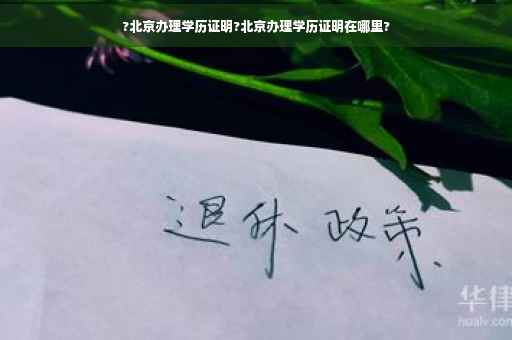 ?北京办理学历证明?北京办理学历证明在哪里?
退休 政策
华律
hualv.com